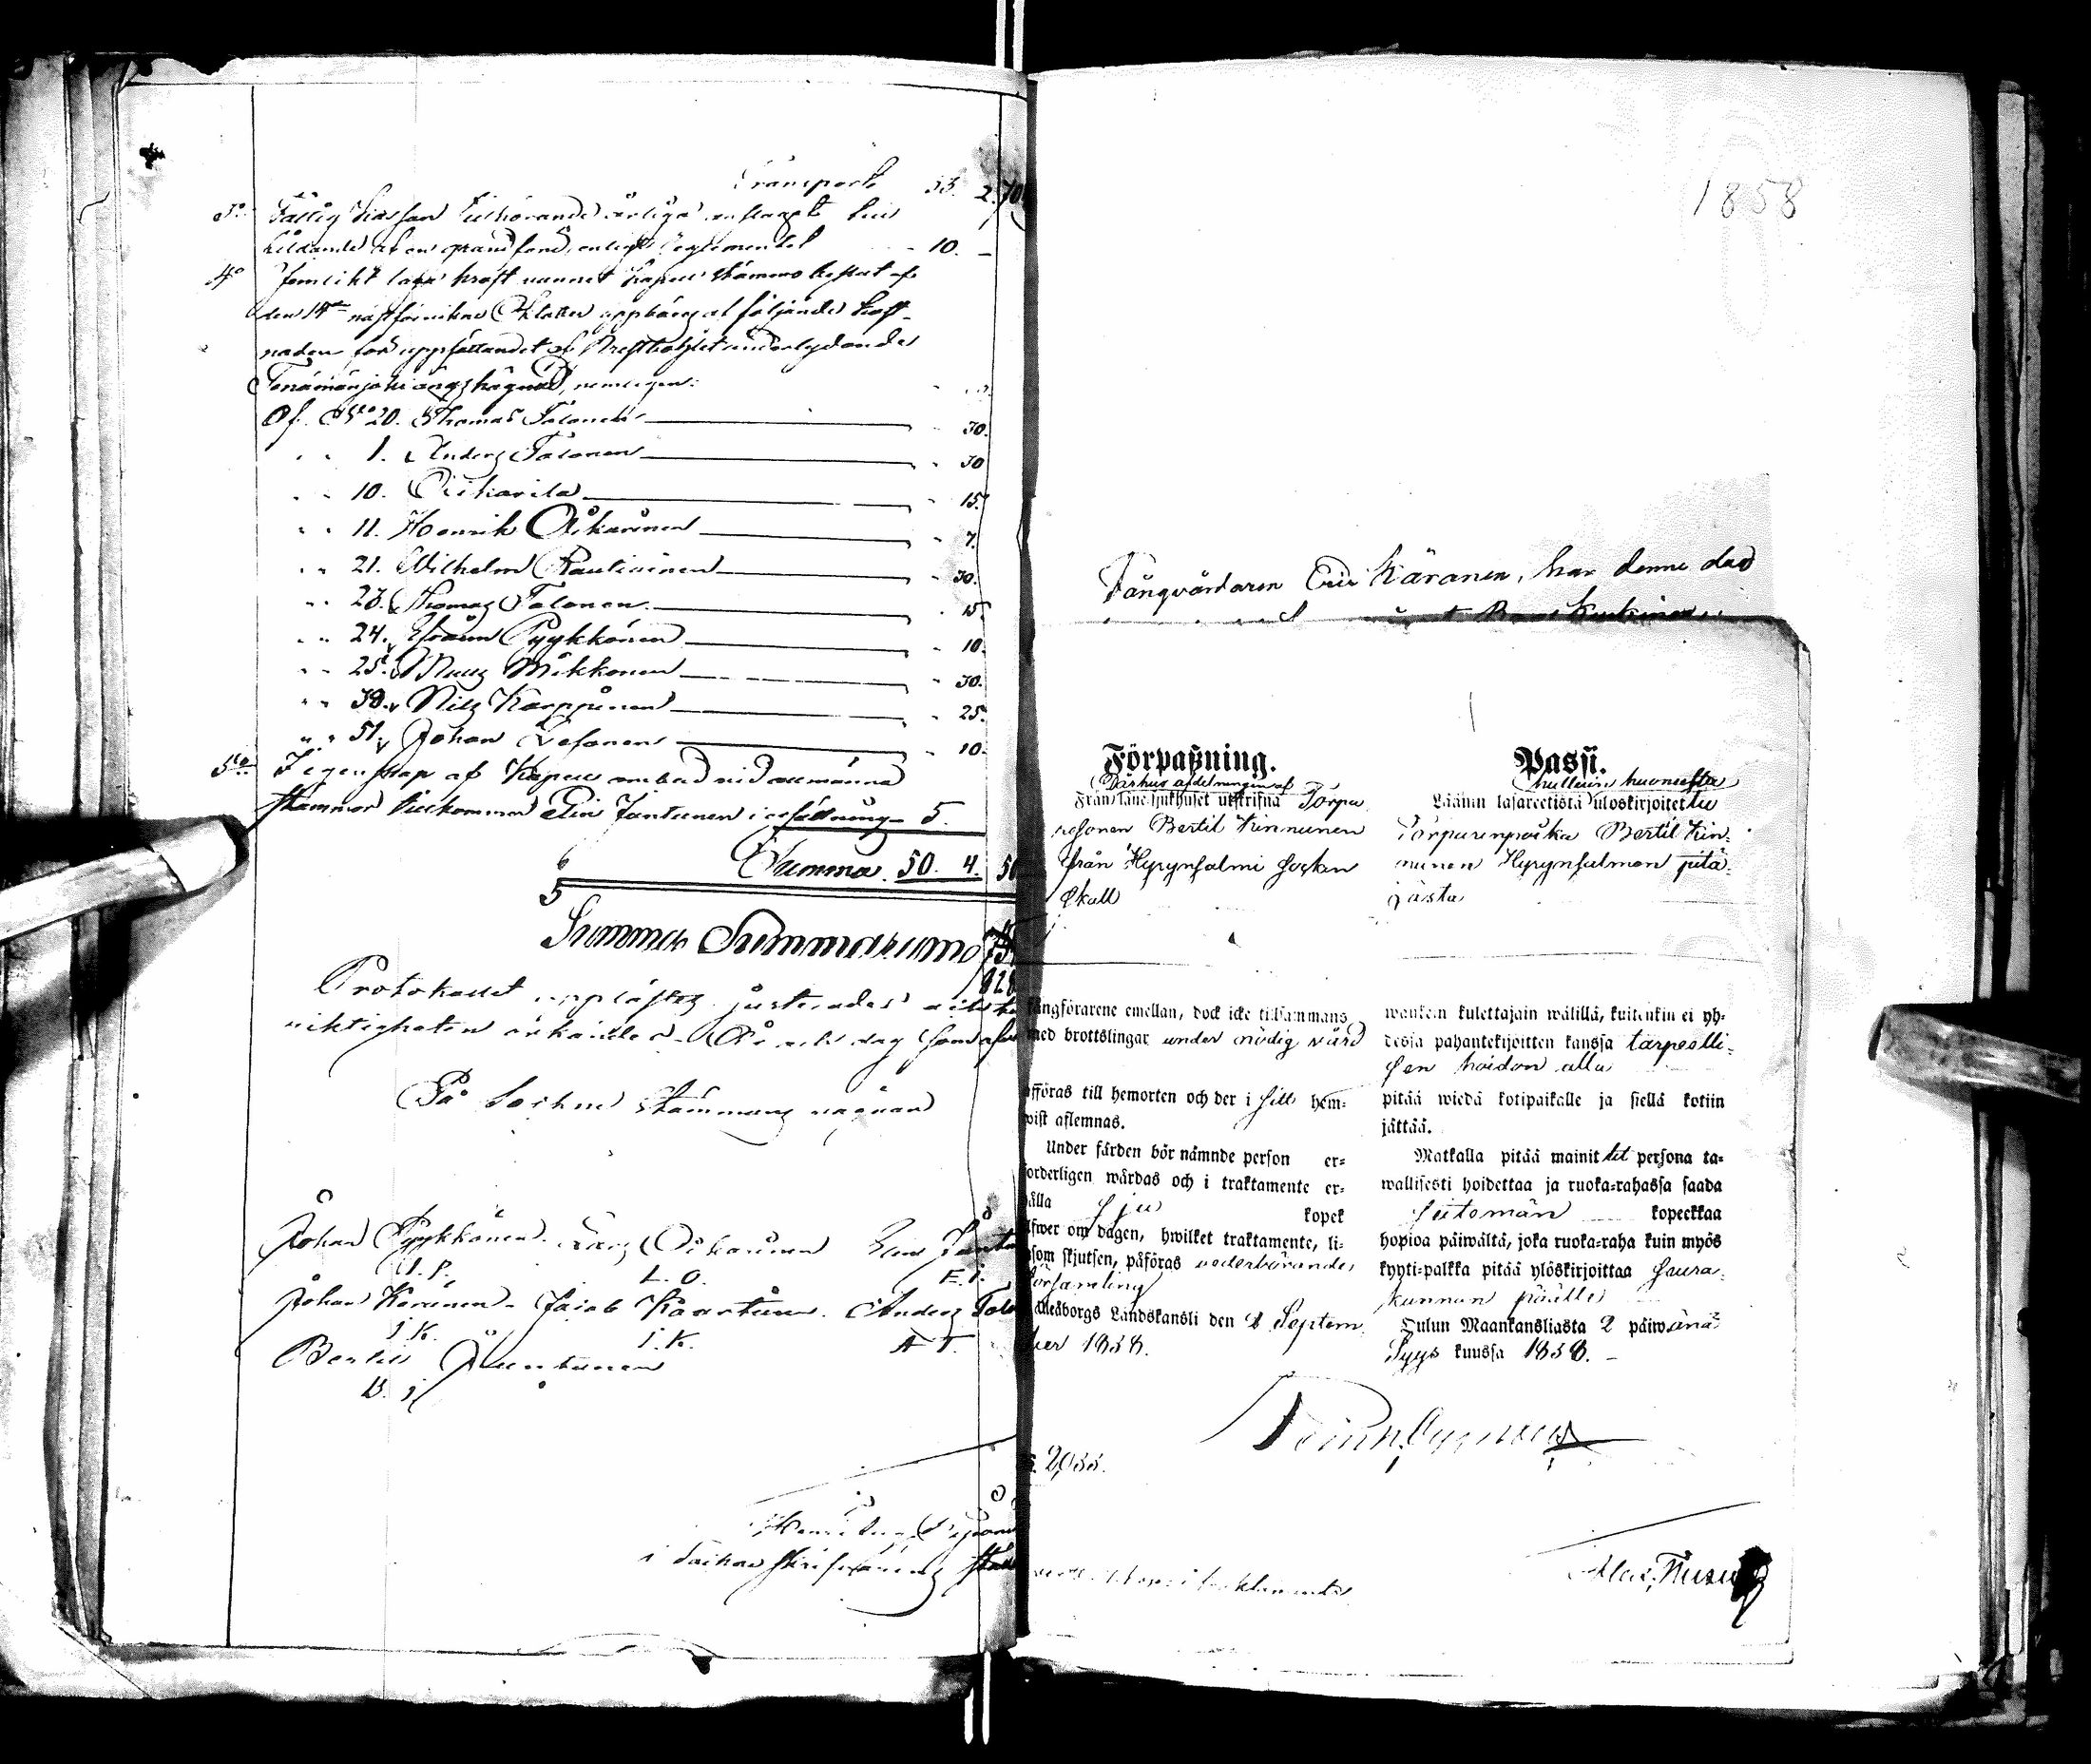 Transport 53. 2. 70
3o Fattig Kassan tillhörande årliga anslaget till
bildande af en grundfond, enligt Reglementet 10. –
4o Jemlikt laga kraft vunnet Kapell Stämmo beslut af
den 14de näst förvikne Oktober uppbäres följande kost-
naden för uppsättandet af Prestbolet underlydande
ängs hägnad, nemligen:
Of No 20. Thomas Tolonen 30.
" " 1. Anders Tolonen 30
" " 10. Oikarila 15.
" " 11. Henrik Oikarinen 7.
" " 21. Wilhelm Rautiainen 30.
" " 23. Thomas Tolonen 15.
" " 24. Efraim Pyykkönen 10.
" " 25. Mikkonen 30.
" " 39. Nils Karppinen 25.
" " 51. Johan Lesonen 10.
5to I egenskap af Kapell ombud vid allmänna
Stämmor tillkommer Elin Juntunen i ersättning 5.
Summa. 50. 4. 50
Summa Summarum 75
828
Protokollet uppläste, justerades
riktigheten erkändes. År och dag som of
På Sockne Stämmans vägnar
Johan Pyykkönen. Lars Oikarinen
J. P. L. O. E. J.
Johan Karinen. Jacob Kaartinen. Anders Tolo
J. K. J. K. A. T.
Bertill Juntunen
B. J.
i Socknes skrifvarens ställ
1858
Fångvårdaren Eric Käranen, har denne dag
Förpaßning.
Dårhus afdelningen af
Från länesjukhuset utskrifna Torpa
resonen Bertil Kinnunen
från Hyrynsalmi Socken
Skall
fångförarene emellan, dock icke tillsammans
med brottslingar under nödig vård
afföras till hemorten och der i sitt hem-
vist aflemnas.
Under färden bör nämnde person er-
forderligen wårdas och i traktamente er-
hålla sju kopek
silfwer om dagen, hwilket traktamente, li-
som skjutsen, påföras vederbörande
församling
Uleåborgs Landskansli den 2 Septem
ber 1858.
Passi.
hulluin huoneesta
Läänin lasareetista uloskirjoitettu
Torparinpoika Bertil Kin-
nunen Hyrynsalmen pitä-
jästä
wankein kulettajain wälillä, kuitenkin ei yh-
dessä pahantekijöitten kanssa tarpeelli-
sen hoidon alla
pitää wiedä kotipaikalle ja siellä kotiin
jättää.
Matkalla pitää mainittet persona ta-
wallisesti hoidettaa ja ruoka-rahassa saada
seitemän kopeekkaa
hopioa päiwältä, joka ruoka-raha kuin myös
kyyti-palkka pitää ylöskirjoittaa Seura-
kunnan päälle
Oulun Maankansliasta 2 päiwänä
Syys kuussa 1858. –
2,033.